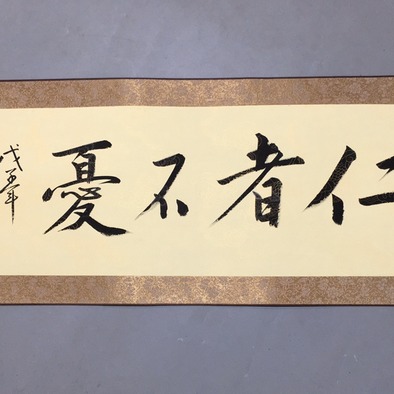 仁者不憂
戊年